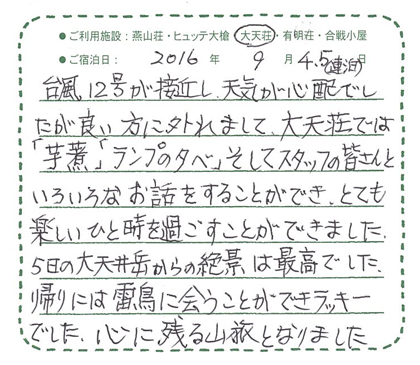 ●ご利用施設：燕山荘・ヒュッテ大槍・大天荘・有明荘・合戦小屋
●ご宿泊日： 2016 年 9 月 4.5(連泊)日
台風12号が接近し、天気が心配でし
たが良い方に外れまして、大天荘では
「芋煮」「ランプの夕べ」そしてスタッフの皆さんと
いろいろなお話をすることができ、とても
楽しいひと時を過ごすことができました。
5日の大天井岳からの絶景は最高でした。
帰りには雷鳥に会うことができラッキー
でした。心に残る山旅となりました